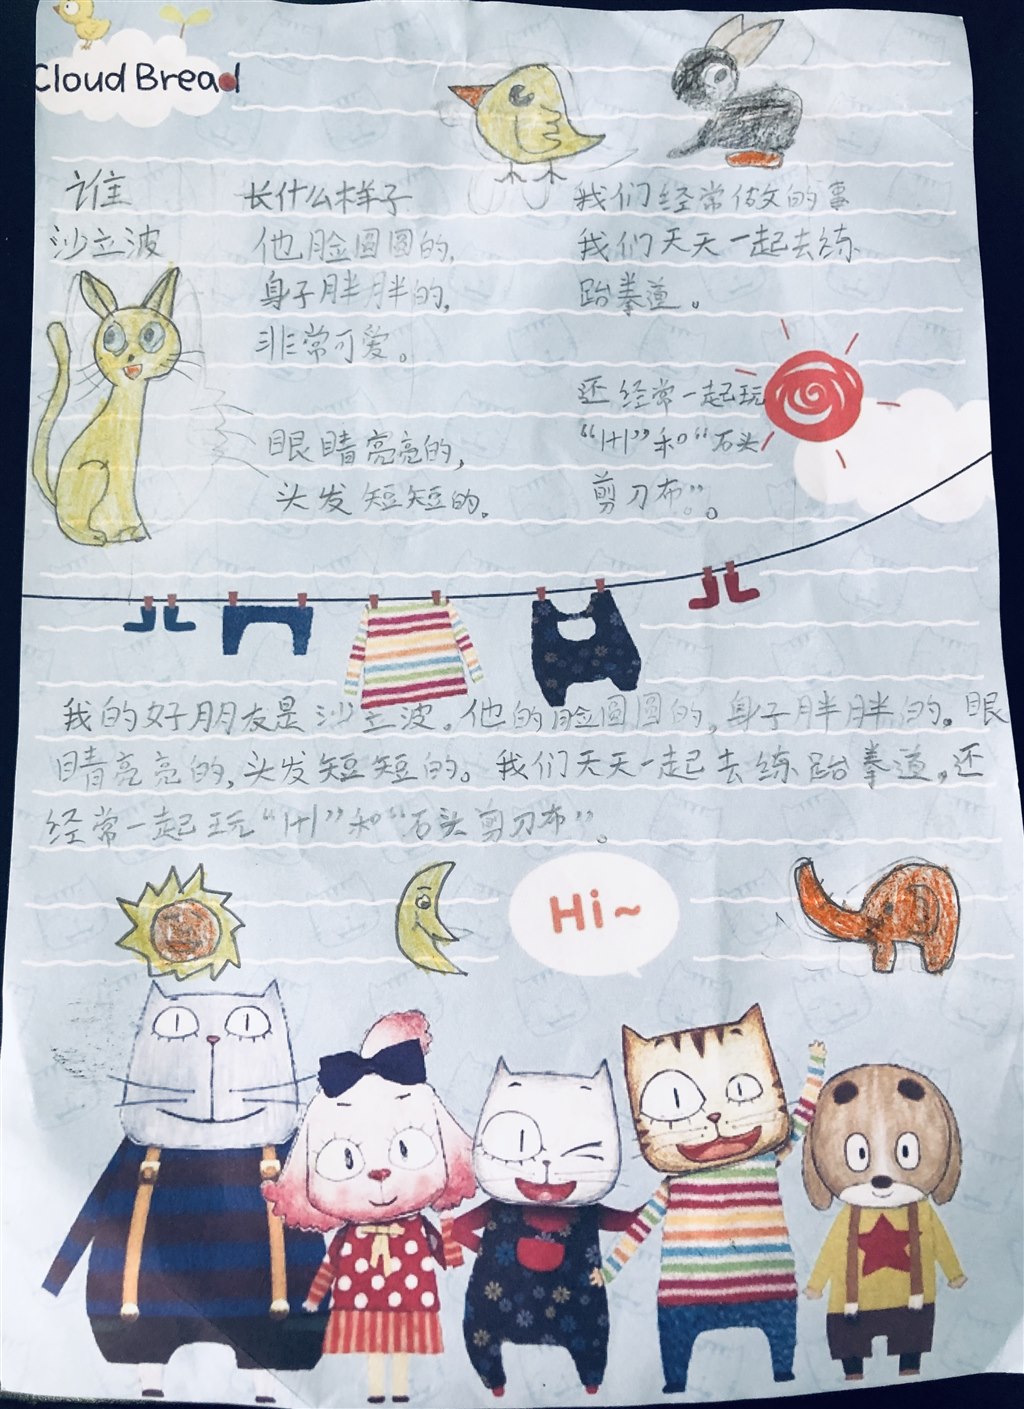 Cloud Bread
谁
沙立波
长什么样子
他脸圆圆的,
身子胖胖的.
非常可爱。
眼睛亮亮的,
头发短短的.
我们经常做的事
我们天天一起去练
跆拳道。
还经常一起玩
“1+1”和“石头
剪刀布”。
我的好朋友是沙立波。他的脸圆圆的,身子胖胖的。眼
睛亮亮的,头发短短的。我们天天一起去练跆拳道,还
经常一起玩“1+1”和“石头剪刀布”。
Hi~